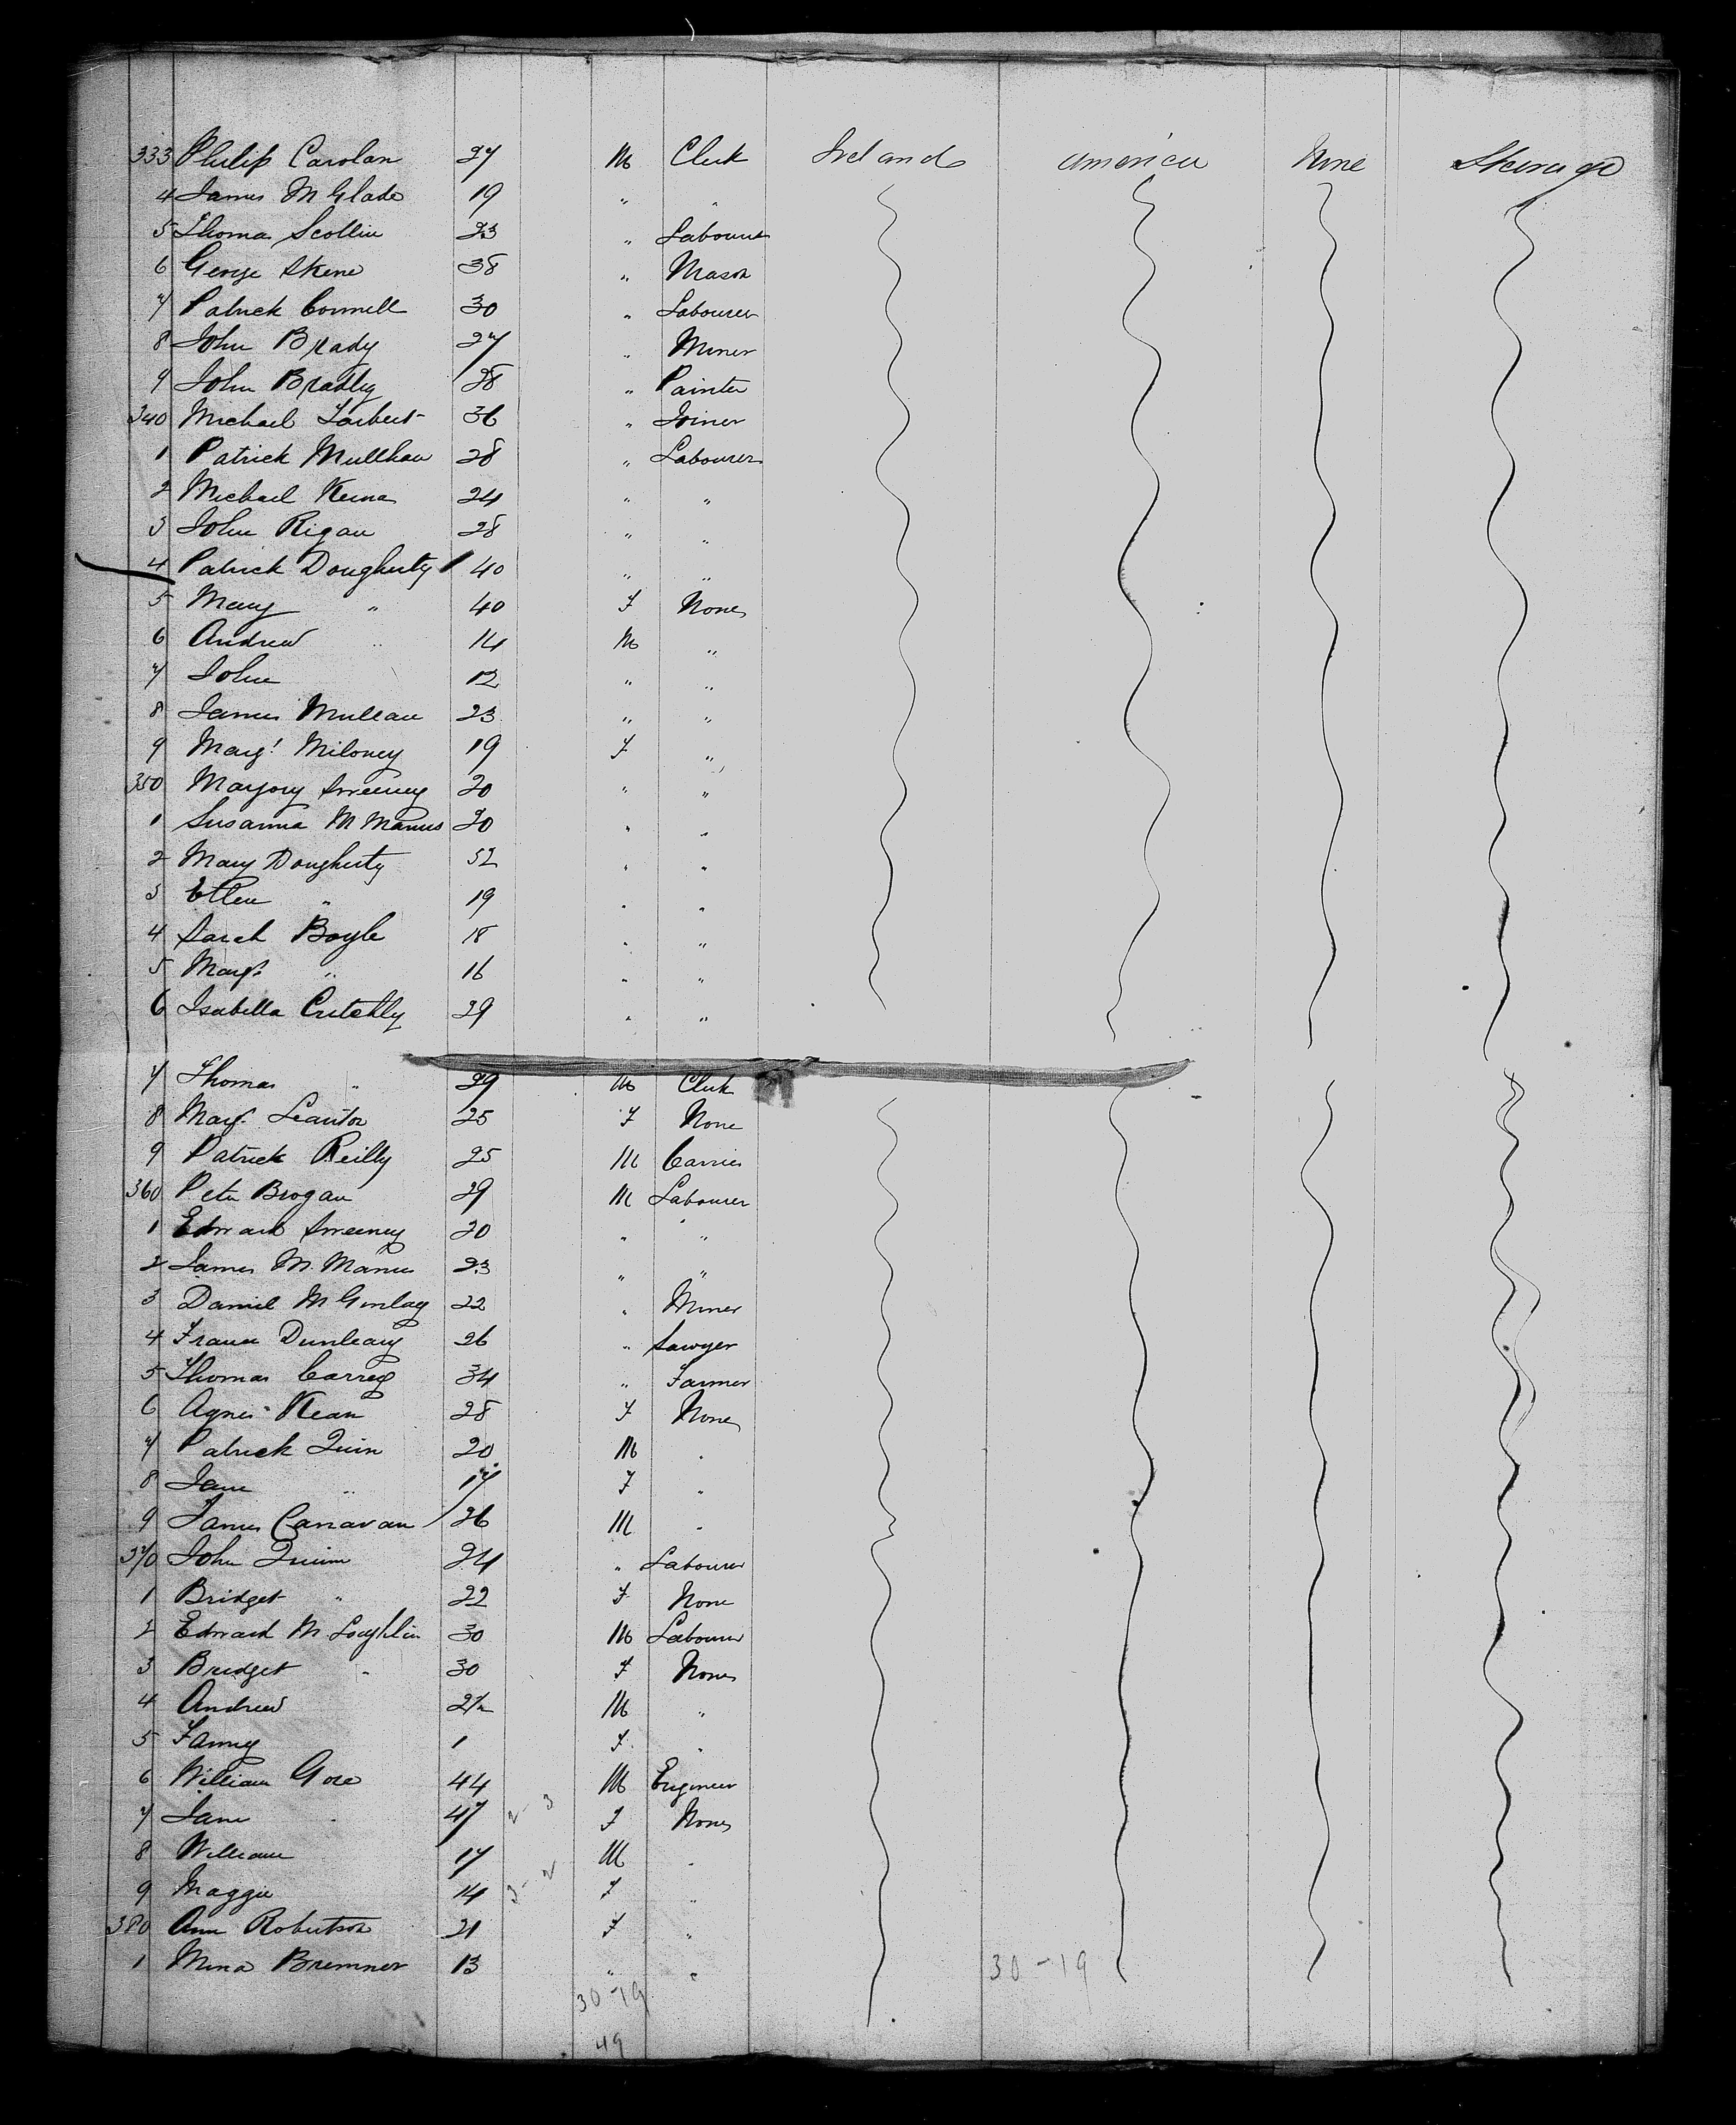 333 Philip Carolan 27 M Clerk Ireland America None Steerage
4 James McGlade 19 " "
5 Thomas Scollin 23 " Labourer
6 George Skene 38 " Mason
7 Patrick Connell 30 " Labourer
8 John Brady 27 " Miner
9 John Bradley 28 " Painter
340 Michael Torbert 36 " Joiner
1 Patrick Mullhan 28 " Labourer
2 Michael 24 " "
3 John Rigan 28 " "
4 Patrick Dougherty 40 " "
5 Mary " 40 F None
6 Andrew " 14 M "
7 John 12 " "
8 James Mullan 23 " "
9 Margt Miloney 19 F "
350 Marjory Sweeney 20 " "
1 Susanna McManus 20 " "
2 Mary Dougherty 52 " "
3 Ellen " 19 " "
4 Sarah Boyle 18 " "
5 Margt " 16 " "
6 Isabella Critchly 29 " "
7 Thomas " 29 M Clerk
8 Margt Scanton 25 F None
9 Patrick Reilly 25 M Carrier
360 Peter Brogan 29 M Labourer
1 Edward Sweeney 20 " "
2 James McManus 23 " "
3 Daniel McGinlay 22 " Miner
4 Francis Dunleavy 26 " Sawyer
5 Thomas Carrey 34 " Farmer
6 Agnes Kean 28 F None
7 Patrick Quin 20 M "
8 Jane " 17 F "
9 James Canavan 26 M "
370 John Quinn 24 " Labourer
1 Bridget " 22 F None
2 Edward McLoughlin 30 M Labourer
3 Bridget " 30 F None
4 Andrew 2½ M "
5 Fanny 1 F "
6 William Gore 44 M Engineer
7 Jane " 47 2-3 F None
8 William 17 M "
9 Maggie 14 3-2 F "
380 Ann Robertson 21 F "
1 Mina Bremner 13 " "
30-19 30-19
49